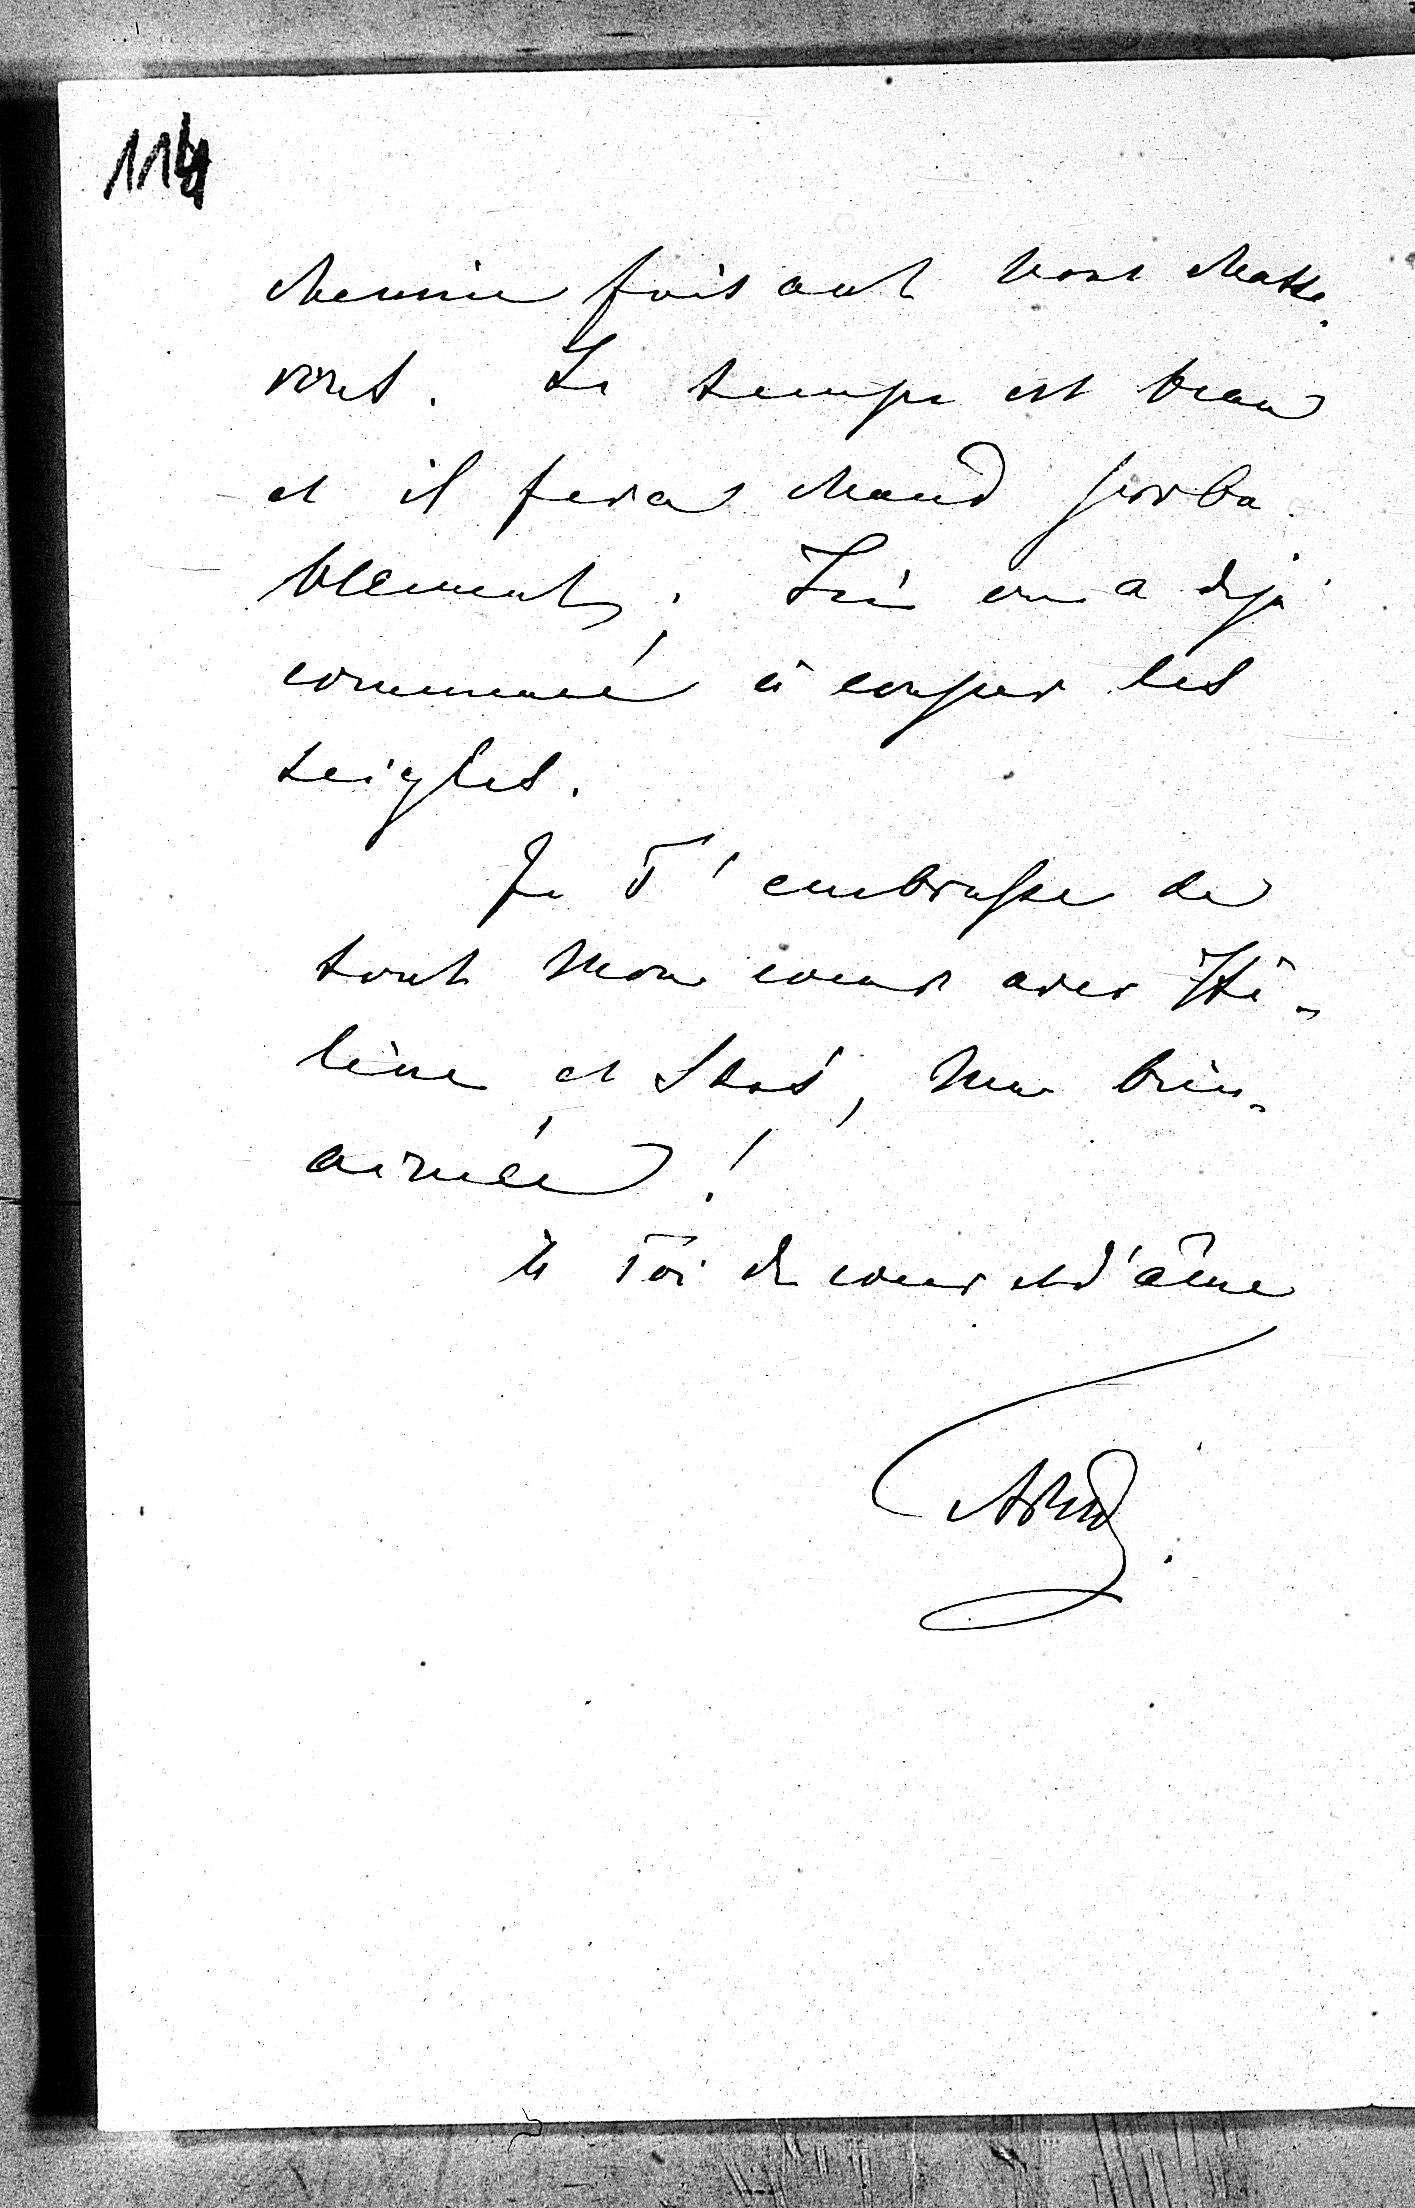 114
chemin faisant nous chasse-
rons. Le temps est beau
et il fera chaud proba-
blement; Ici on a déjà
commencé à couper les
seigles.
Je T'embrasse de
tout mon coeur avec Hé-
lène et Stas, ma bien-
aimée!
à Toi de coeur et d'âme